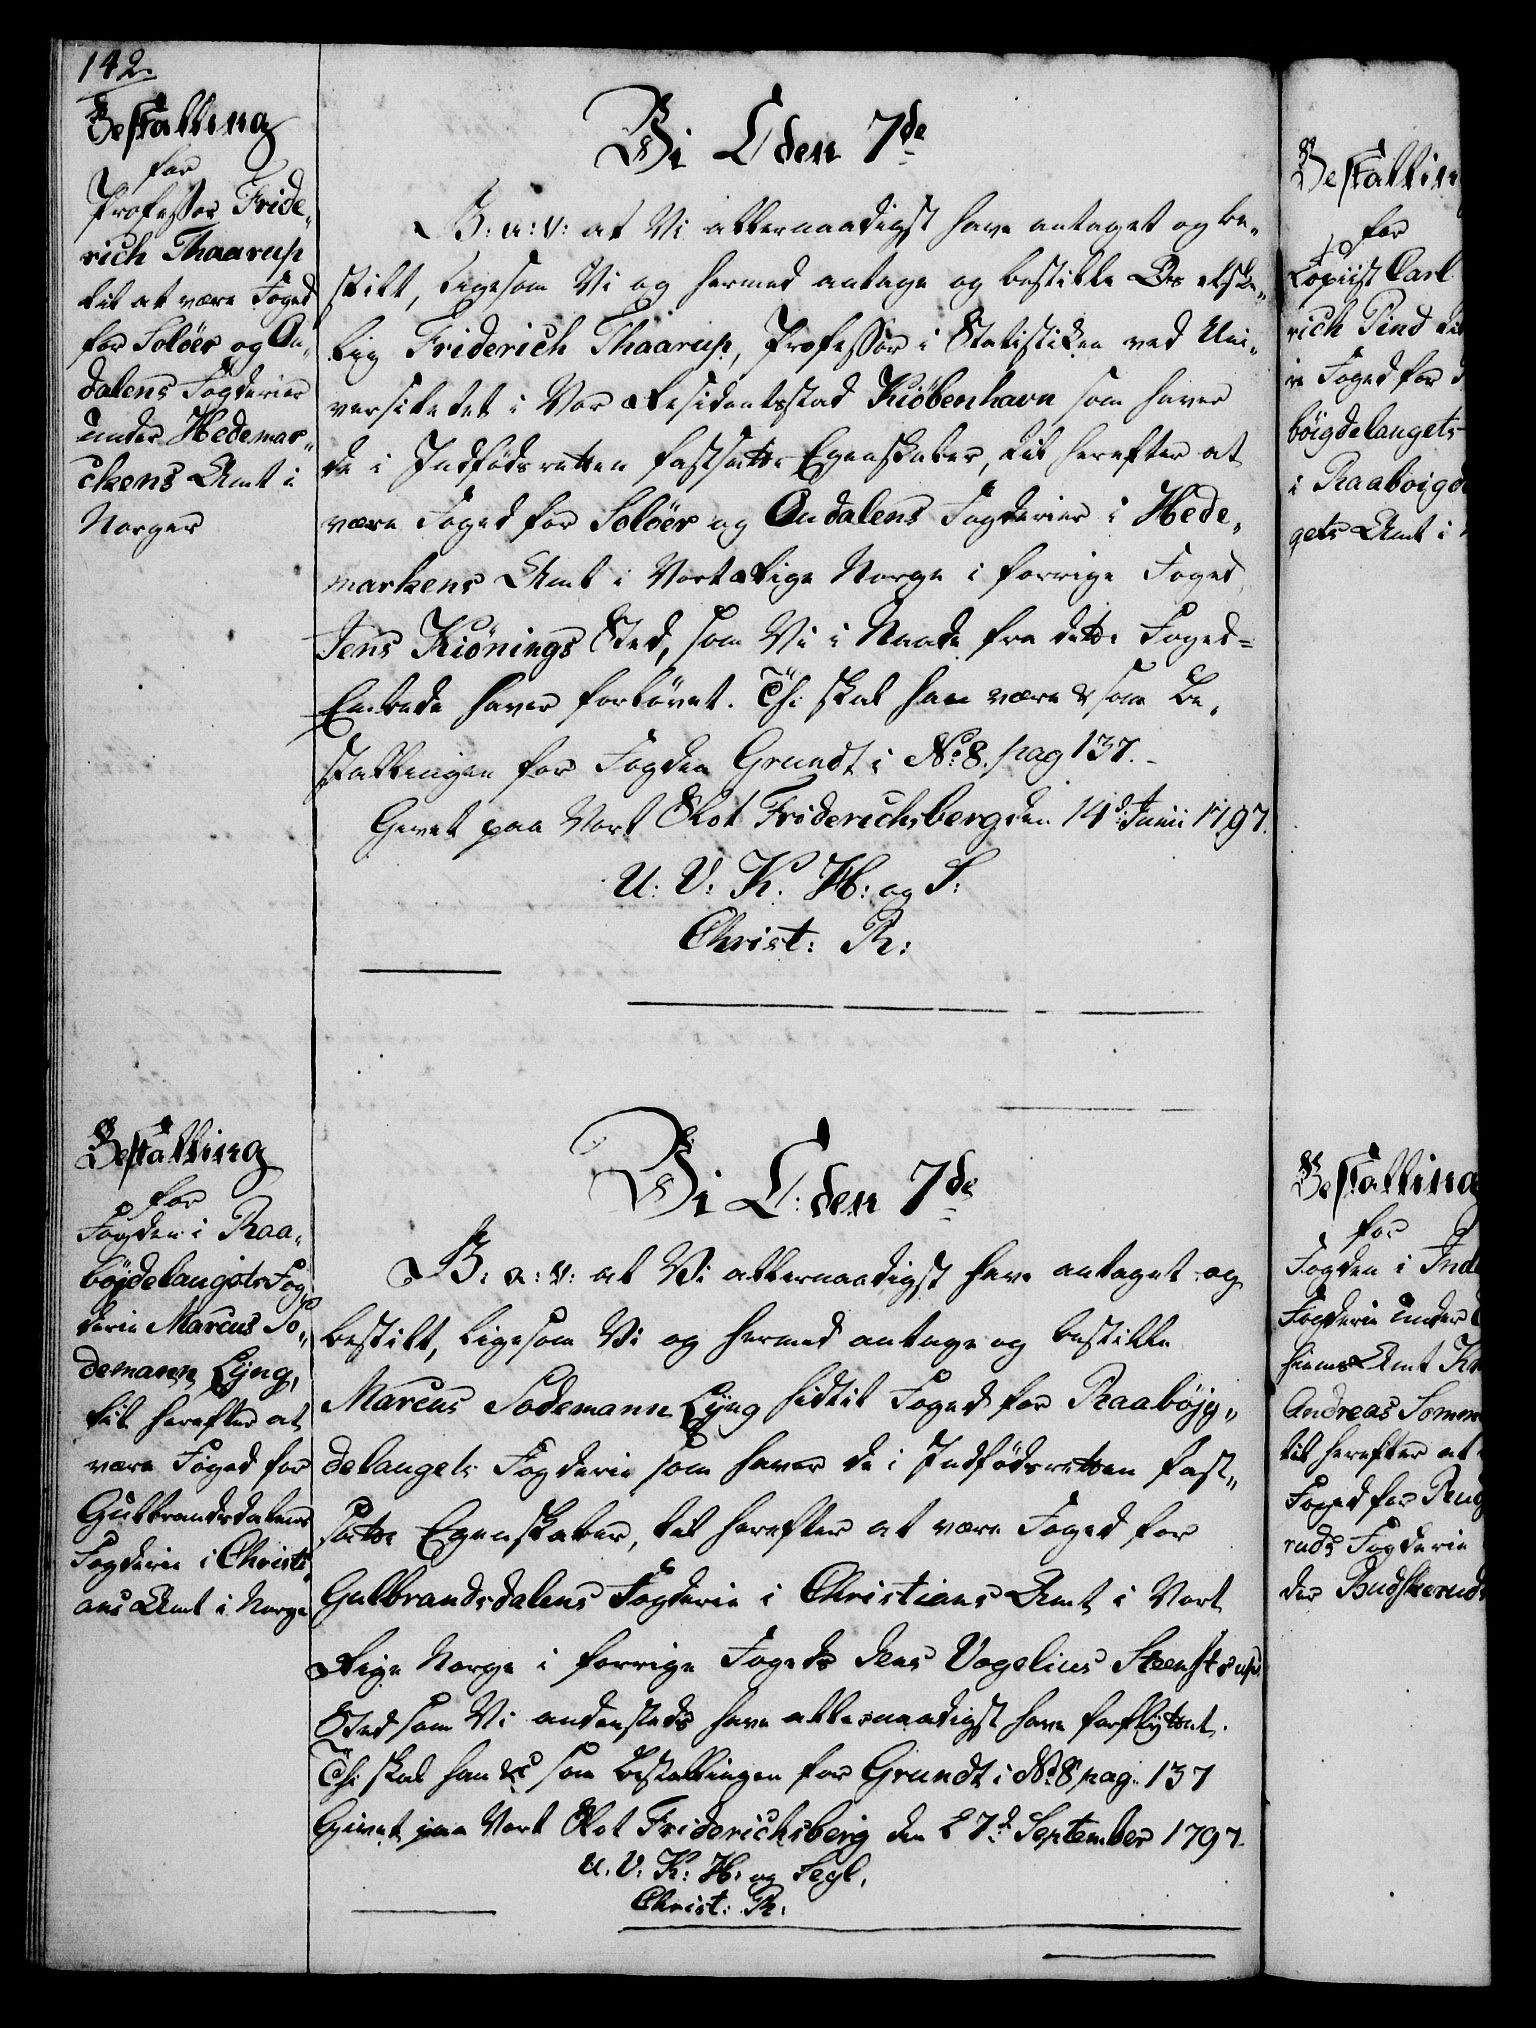 142.
Bestalling
for
Professor Fride„
rich Thaarup
til at være Foged
for Solöer og Ou„
dalens Fogderier
under Hedemar„
ckens Amt i
Norger
Vi C den 7de
B: a: v: at Vi allernaadigst have antaget og be„
stilt, ligesom Vi og hermed antage og bestille Os elske„
lig Friderich Thaarup, Professor i Statistiken ved Uni„
versitetet i Vor Residentsstad Kiöbenhavn som haver
de i Indfödsretten fastsatte Egenskaber, til herefter at
være Foged for Solöer og Oudalens Fogderier i Hede„
markens Amt i Vort Rige Norge i forrige Foged
Jens Kiönings Sted, som Vi i Naade fra dette Foged=
Embede haver forlövet. Thi skal han være & som Be„
stallingen for Fogden Grundt i No 8. pag 137.
Givet paa Vort Slot Friderichsberg den 14d Junii 1797.
U: V: K. H: og S:
Christ: R:
Bestalling
for
Fogden i Raa„
böjdelaugets Fog„
derie Marcus So„
demann Lÿng,
til herefter at
være Foged for
Gulbrandsdalens
Fogderie i Christi„
ans Amt i Norge
Vi C: den 7de
B: a: v: at Vi allernaadigst have antaget og
bestilt, ligesom Vi og hermed antage og bestille
Marcus Sodemann Lÿng hidtil Foged for Raaböjg„
delaugets Fogderie som haver de i Indfödsretten fast„
satte Egenskaber, til herefter at være Foged for
Gulbrandsdalens Fogderie i Christians Amt i Vort
Rige Norge i forrige Fogeds Jens Vogelius Steenstrups
Sted som Vi andensteds have allernaadigst have forflÿttet.
Thi skal han &c som Bestallingen for Grundt i No 8 pag: 137
Givet paa Vort Slot Friderichsberg den 27d September 1797.
U. V: K: H: og Segl.
Christ: R:
Bestallin
for
Copiist Carl
rich Pind til
re Foged for
böigdelaugets
i Raaboigde
gets Amt i
Bestalling
for
Fogden i Inde
Fogderie under
hiems Amt
Andreas Somm
til herefter at
Foged for
ruds Fogderie
der Budskeruds